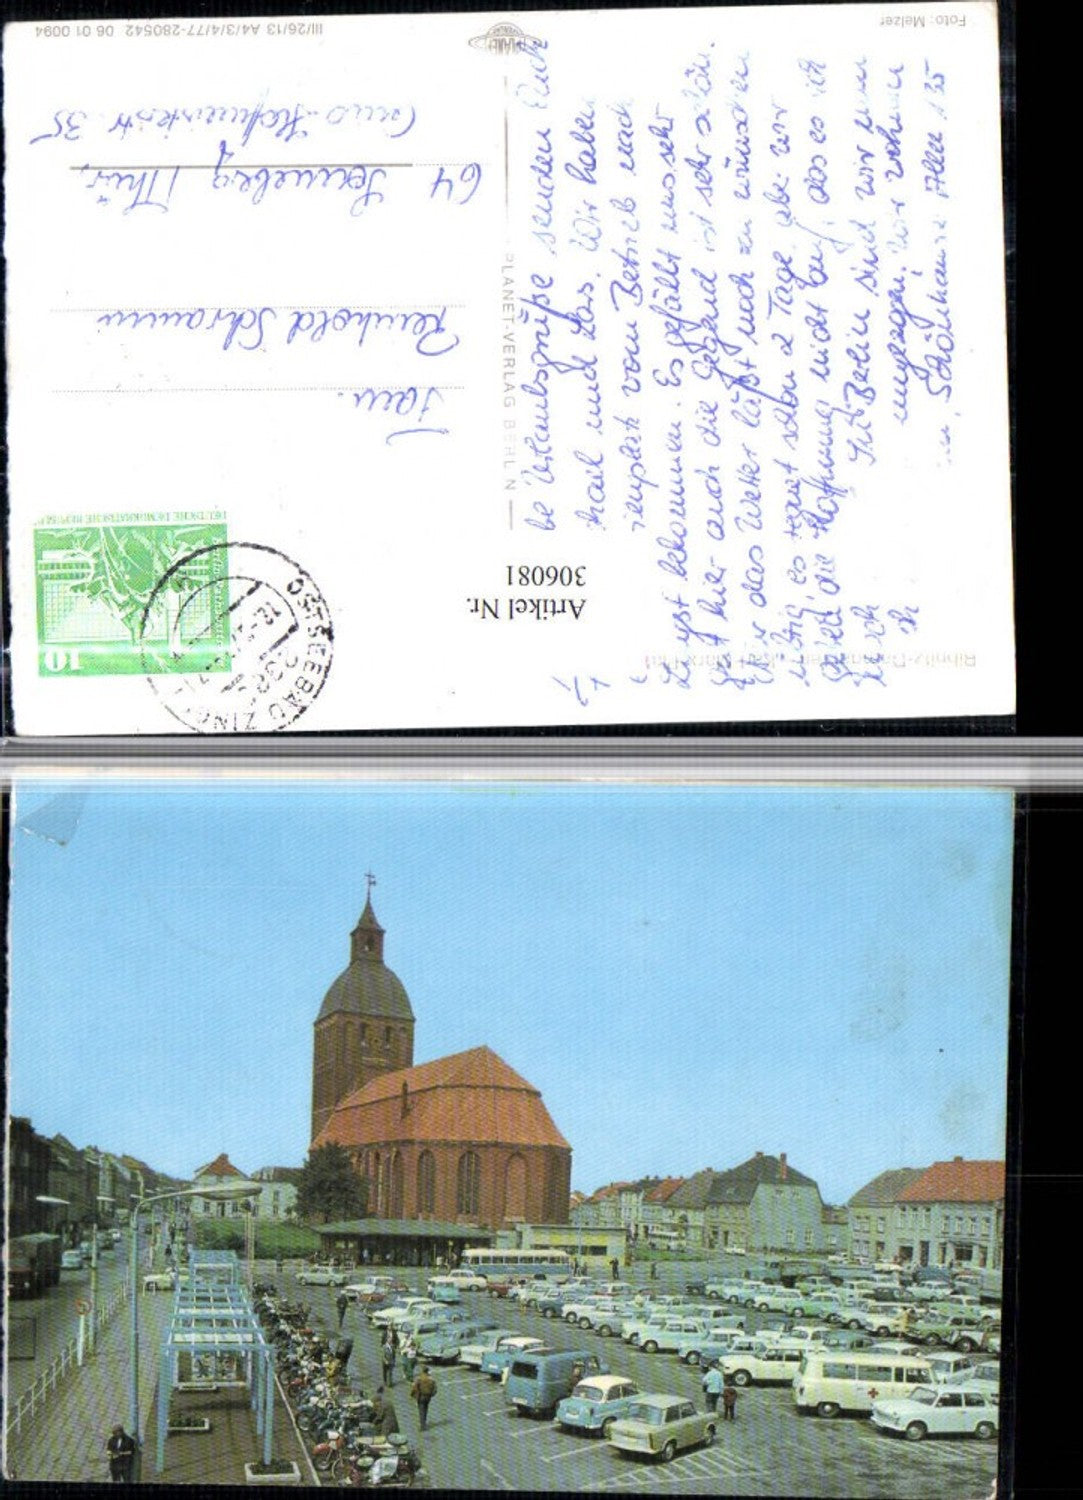 Foto: Melzer
III/26/13 A4/3/4/77-280542 06 01 0094
PLANET-VERLAG BERLIN
Artikel Nr.
306081
DEUTSCHE DEMOKRATISCHE REPUBLIK
10
OSTSEEBAD ZINGST
Fam.
Reinhold Schramm
64 Sonneberg / Thür.
35
be Urlaubsgrüße senden Euch
und Las. Wir haben
vom Betrieb nach
Zingst bekommen. Es gefällt uns sehr
gut hier auch die Gegend ist sehr schön.
Nur das Wetter läßt noch zu wünschen
übrig, es regnet schon 2 Tage. aber wir
die Hoffnung nicht auf, das es sich
noch
In Berlin sind wir nun
umgezogen. Wir wohnen
Schönhauser Allee 135